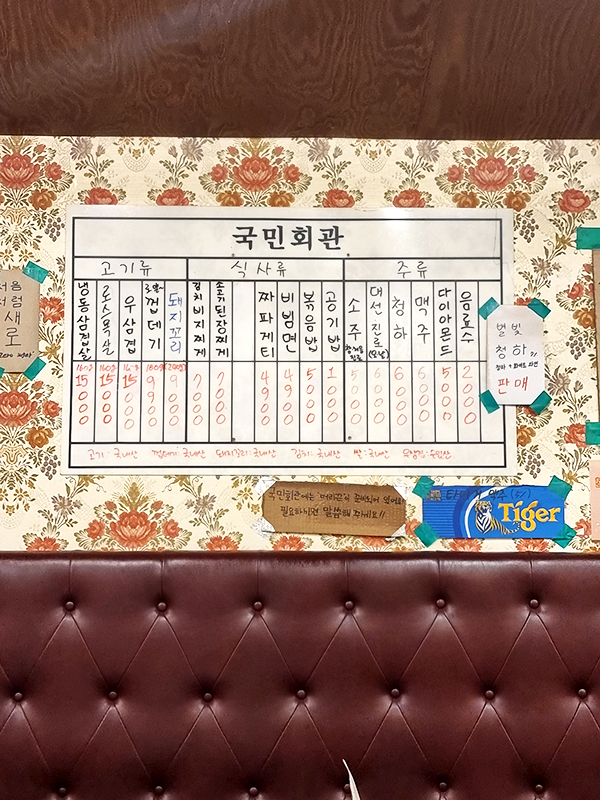 국민회관
고기류
식사류
주류
냉동삼겹살 160g 15000
로스목살 160g 15000
우삼겹 15000
껍데기 9000
돼지꼬리 9000
김치비지찌개 7000
소고기된장찌개 7000
짜파게티 4000
비빔면 4900
볶음밥 5000
공기밥 1000
소주 5000
대선 진로
청하 6000
맥주
다이아몬드 5000
음료수 2000
고기: 국내산 껍데기: 국내산 돼지꼬리: 국내산 김치: 국내산 쌀: 국내산
처음
처럼
새
로
별빛
청하
판매
국민회관에는 머리끈이 준비되어 있어요
필요하시면 말씀해 주세요!!
맥주
Tiger